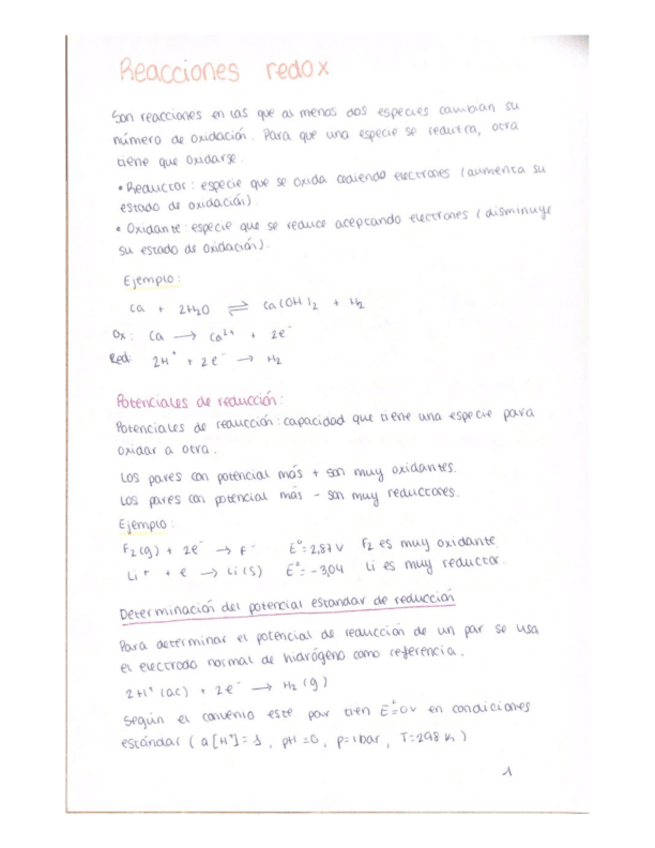 Reacciones redox
Son reacciones en las que al menos dos especies cambian su
número de oxidación. Para que una especie se reduzca, otra
tiene que oxidarse.
• Reductor: especie que se oxida cediendo electrones (aumenta su
estado de oxidación).
• Oxidante: especie que se reduce aceptando electrones (disminuye
su estado de oxidación).
Ejemplo:
Ca + 2H₂O ⇌ Ca(OH)₂ + H₂
Ox: Ca → Ca²⁺ + 2e⁻
Red: 2H⁺ + 2e⁻ → H₂
Potenciales de reducción:
Potenciales de reducción: capacidad que tiene una especie para
oxidar a otra.
Los pares con potencial más + son muy oxidantes.
Los pares con potencial más - son muy reductores.
Ejemplo:
F₂(g) + 2e⁻ → F⁻ E°=2,87 V F₂ es muy oxidante.
Li⁺ + e → Li(s) E°=-3,04 Li es muy reductor.
Determinación del potencial estandar de reducción
Para determinar el potencial de reducción de un par se usa
el electrodo normal de hidrógeno como referencia.
2H⁺(ac) + 2e⁻ → H₂(g)
Según el convenio este par tien E°=0V en condiciones
estándar (a[H⁺]=1, pH=0, p=1bar, T=298K)
1